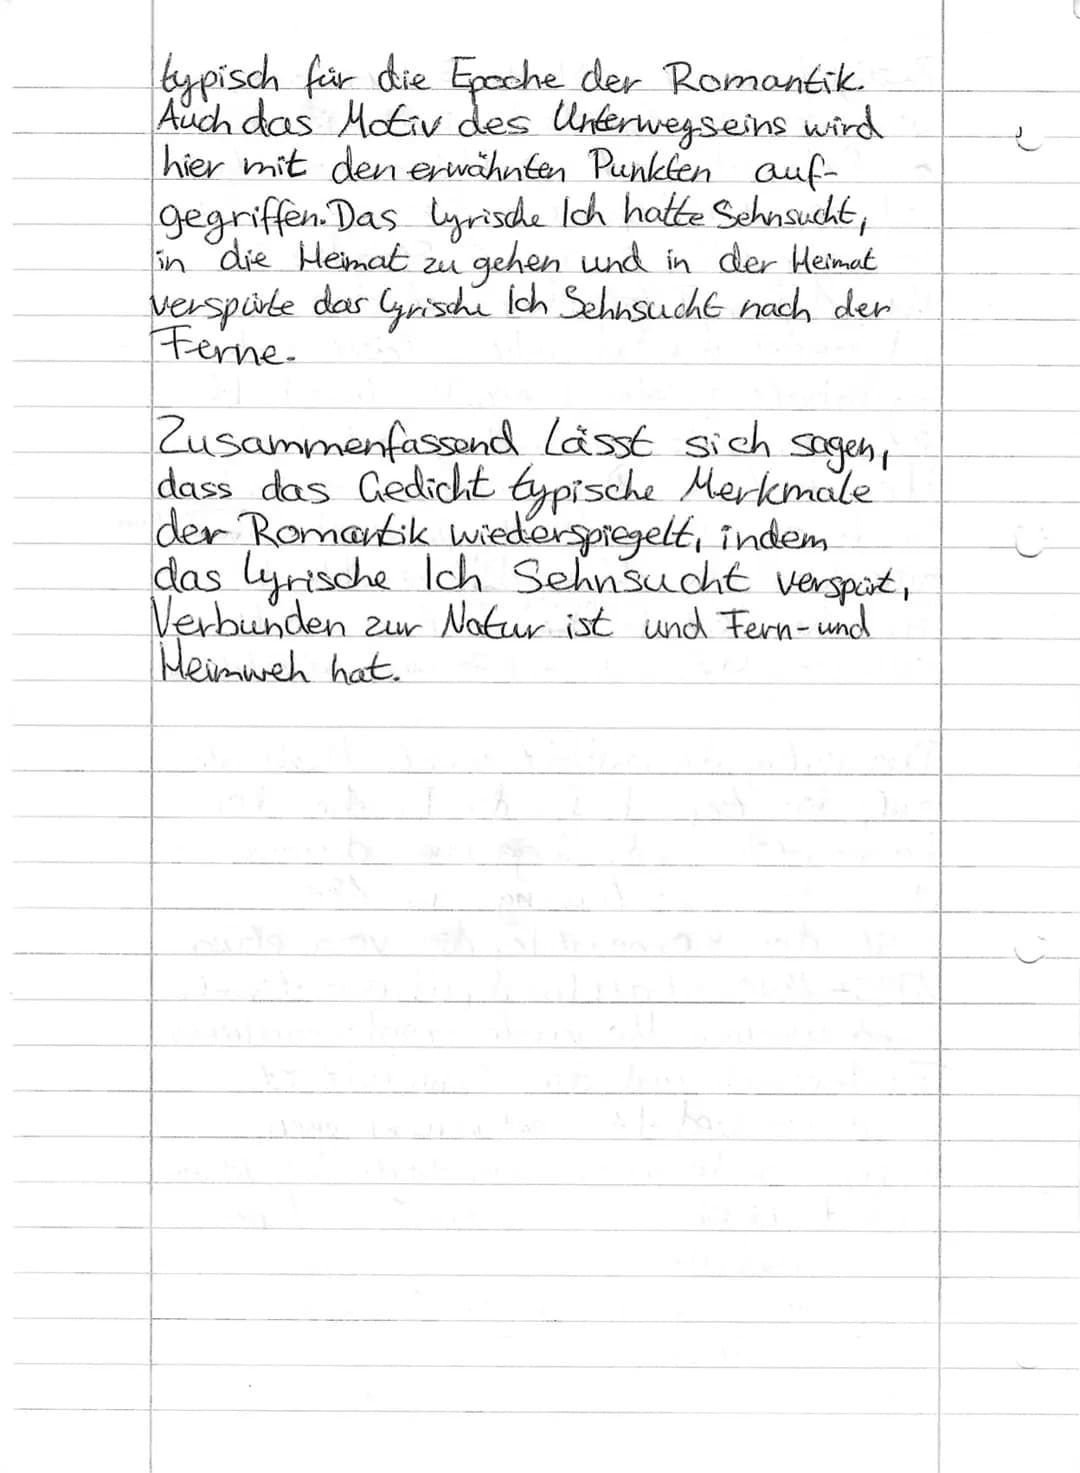 typisch für die Epoche der Romantik.
Auch das Motiv des Unterwegseins wird
hier mit den erwähnten Punkten auf-
gegriffen. Das lyrische Ich hatte Sehnsucht,
in die Heimat zu gehen und in der Heimat
verspürte das lyrische Ich Sehnsucht nach der
Ferne.
Zusammenfassend lässt sich sagen,
dass das Gedicht typische Merkmale
der Romantik wiederspiegelt, indem
das lyrische Ich Sehnsucht verspürt,
Verbunden zur Natur ist und Fern- und
Heimweh hat.